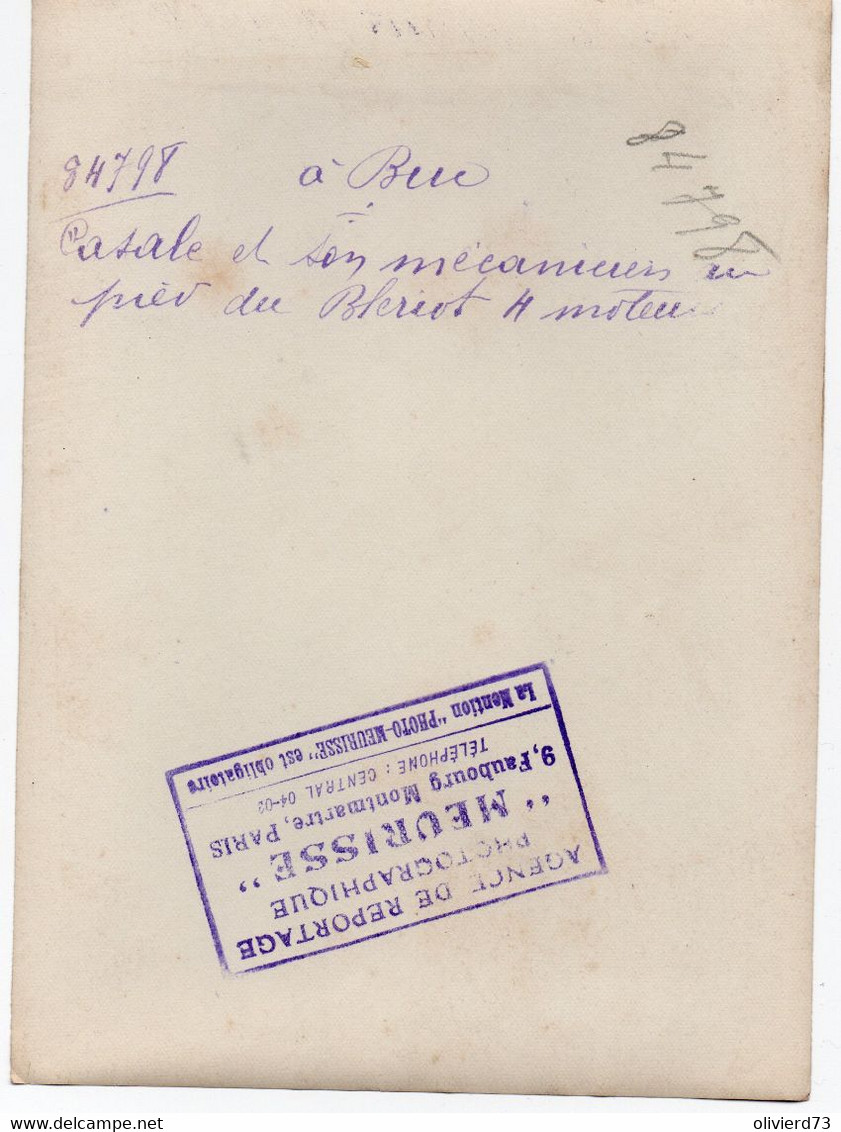 84798
à Buc
84798
Casale et son mécanicien au
pied du Blériot 4 moteurs
AGENCE DE REPORTAGE
PHOTOGRAPHIQUE
"MEURISSE"
9, Faubourg Montmartre, PARIS
TÉLÉPHONE : CENTRAL 04-03
La Mention "PHOTO-MEURISSE" est obligatoire
delcampe.com
olivierd73